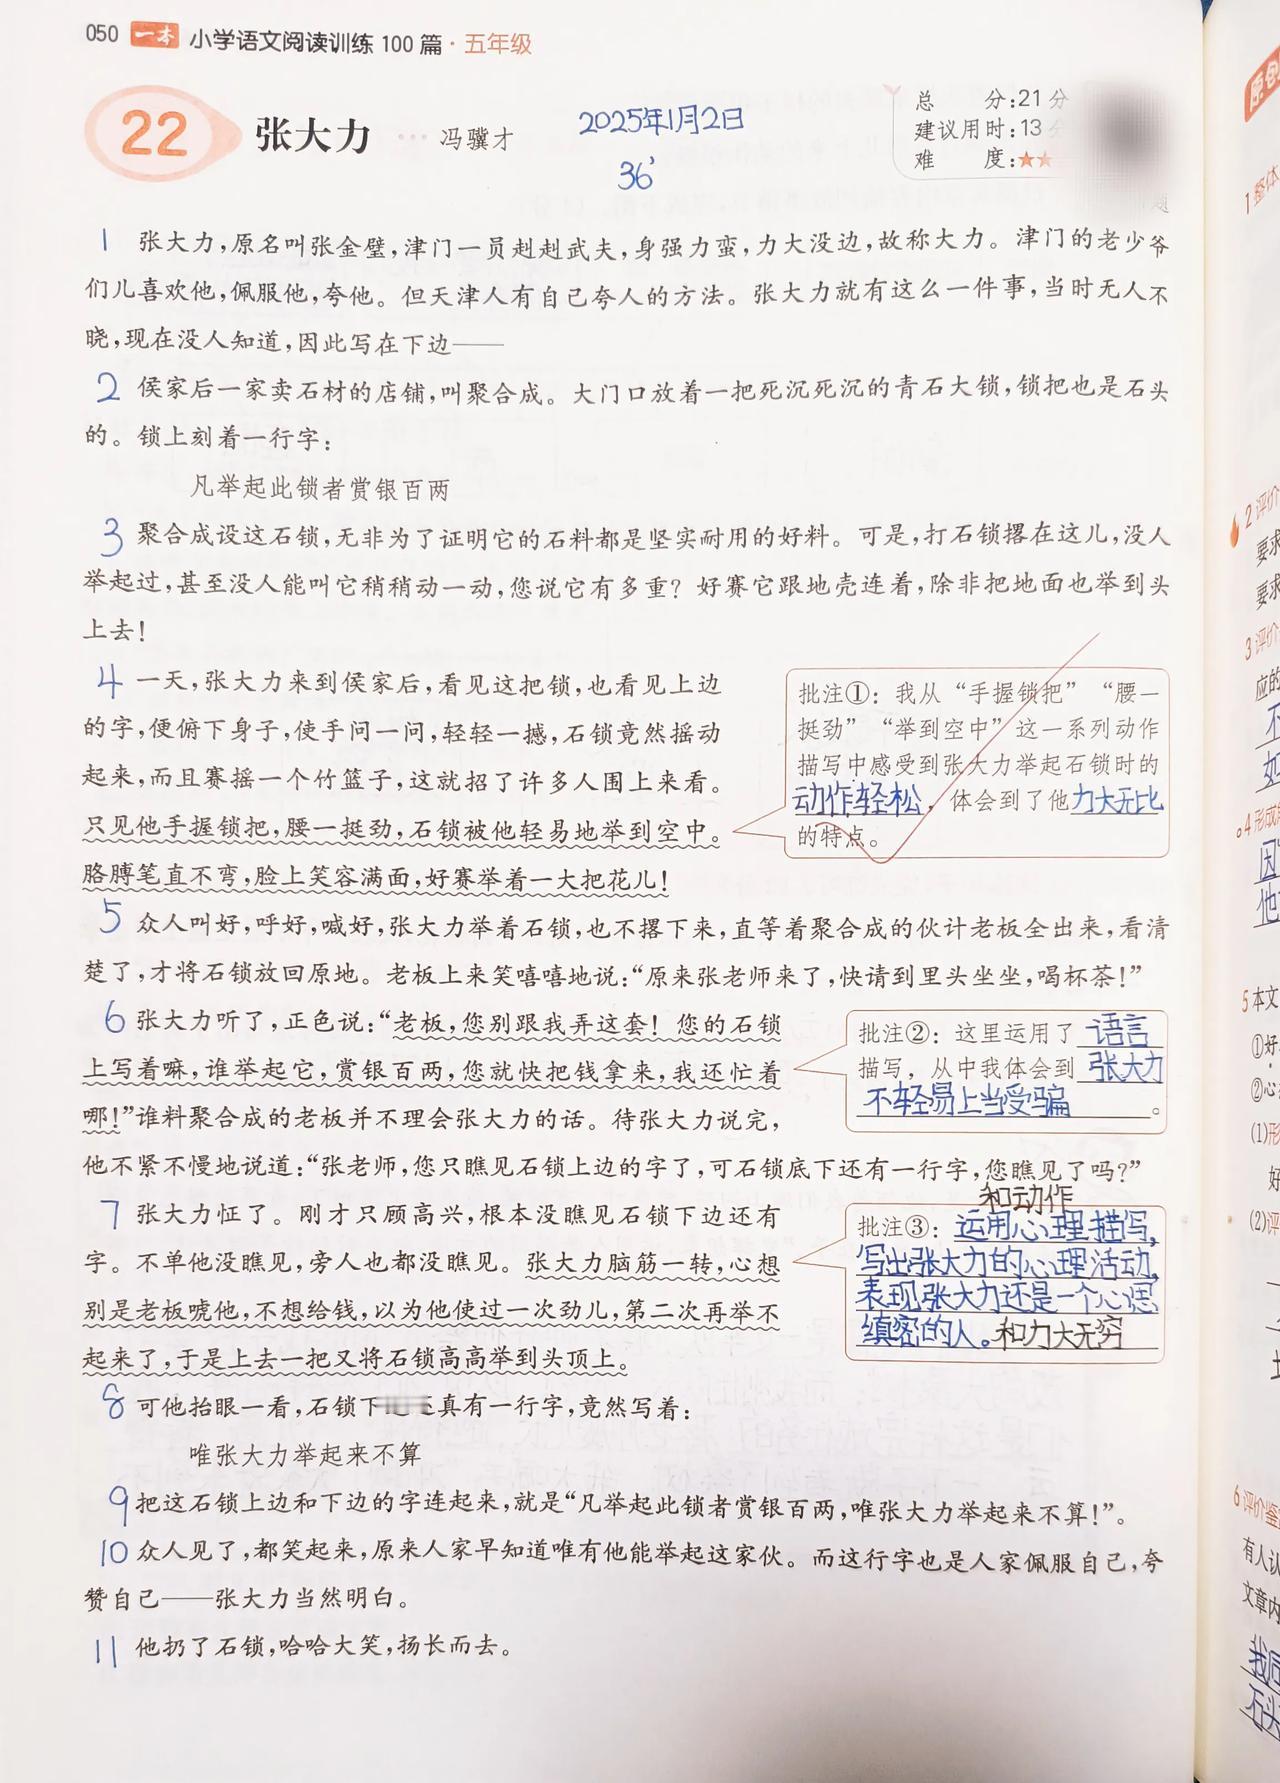 050 一本 小学语文阅读训练100篇·五年级
22 张大力 … 冯骥才
2025年1月2日
36'
总 分:21分
建议用时:13分
难 度:★★
题
1 张大力,原名叫张金璧,津门一员赳赳武夫,身强力蛮,力大没边,故称大力。津门的老少爷
们儿喜欢他,佩服他,夸他。但天津人有自己夸人的方法。张大力就有这么一件事,当时无人不
晓,现在没人知道,因此写在下边——
2 侯家后一家卖石材的店铺,叫聚合成。大门口放着一把死沉死沉的青石大锁,锁把也是石头
的。锁上刻着一行字:
凡举起此锁者赏银百两
3 聚合成设这石锁,无非为了证明它的石料都是坚实耐用的好料。可是,打石锁撂在这儿,没人
举起过,甚至没人能叫它稍稍动一动,您说它有多重?好赛它跟地壳连着,除非把地面也举到头
上去!
4 一天,张大力来到侯家后,看见这把锁,也看见上边
的字,便俯下身子,使手问一问,轻轻一撼,石锁竟然摇动
起来,而且赛摇一个竹篮子,这就招了许多人围上来看。
只见他手握锁把,腰一挺劲,石锁被他轻易地举到空中。
胳膊笔直不弯,脸上笑容满面,好赛举着一大把花儿!
批注①:我从“手握锁把”“腰一
挺劲”“举到空中”这一系列动作
描写中感受到张大力举起石锁时的
动作轻松,体会到了他力大无比
的特点。
5 众人叫好,呼好,喊好,张大力举着石锁,也不撂下来,直等着聚合成的伙计老板全出来,看清
楚了,才将石锁放回原地。老板上来笑嘻嘻地说:“原来张老师来了,快请到里头坐坐,喝杯茶!”
6 张大力听了,正色说:“老板,您别跟我弄这套!您的石锁
上写着嘛,谁举起它,赏银百两,您就快把钱拿来,我还忙着
哪!”谁料聚合成的老板并不理会张大力的话。待张大力说完,
他不紧不慢地说道:“张老师,您只瞧见石锁上边的字了,可石锁底下还有一行字,您瞧见了吗?”
批注②:这里运用了 语言
描写,从中我体会到 张大力
不轻易上当受骗。
7 张大力怔了。刚才只顾高兴,根本没瞧见石锁下边还有
字。不单他没瞧见,旁人也都没瞧见。张大力脑筋一转,心想
别是老板唬他,不想给钱,以为他使过一次劲儿,第二次再举不
起来了,于是上去一把又将石锁高高举到头顶上。
和动作
批注③:运用心理描写,
写出张大力的心理活动,
表现张大力还是一个心思
缜密的人。和力大无穷
8 可他抬眼一看,石锁下真有一行字,竟然写着:
唯张大力举起来不算
9 把这石锁上边和下边的字连起来,就是“凡举起此锁者赏银百两,唯张大力举起来不算!”。
10 众人见了,都笑起来,原来人家早知道唯有他能举起这家伙。而这行字也是人家佩服自己,夸
赞自己——张大力当然明白。
11 他扔了石锁,哈哈大笑,扬长而去。
1 整体
2 评价
要求
要求
3 评价
应的
4 形成
因
他
5 本文
①好
②心
(1)形
好
(2)评
6 评价鉴
有人认
文章内
我同
石头